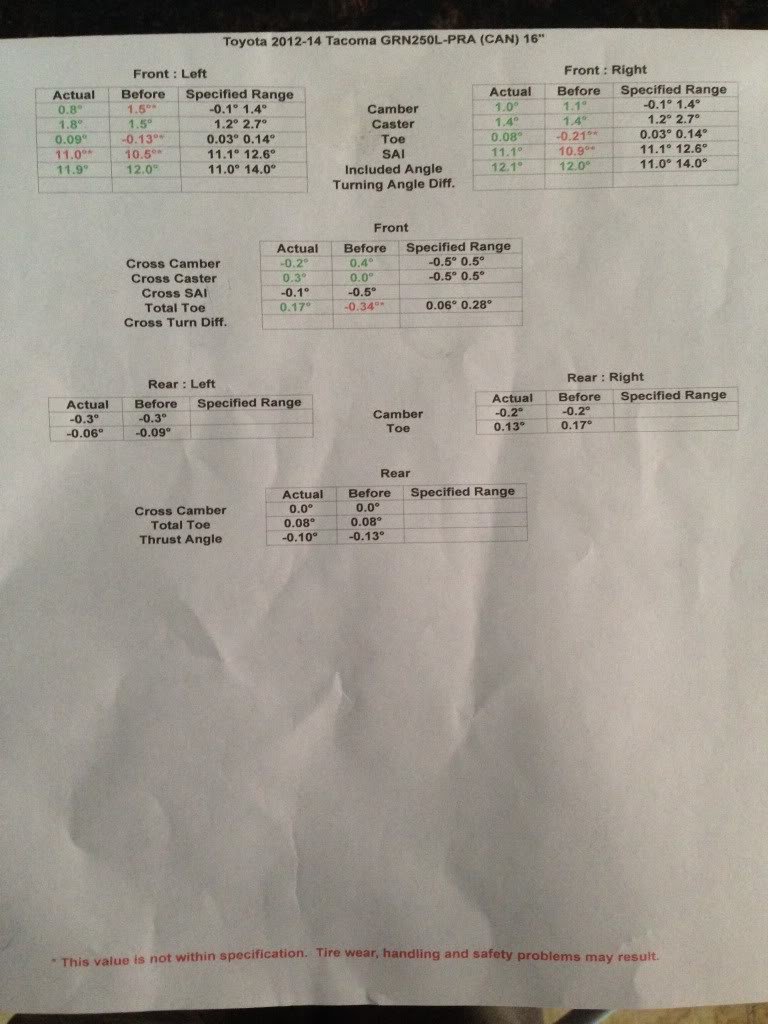 Toyota 2012-14 Tacoma GRN250L-PRA (CAN) 16"
Front : Left
Actual Before Specified Range
0.8° 1.5°* -0.1° 1.4°
1.8° 1.5° 1.2° 2.7°
0.09° -0.13°* 0.03° 0.14°
11.0°* 10.5°* 11.1° 12.6°
11.9° 12.0° 11.0° 14.0°
Camber
Caster
Toe
SAI
Included Angle
Turning Angle Diff.
Front : Right
Actual Before Specified Range
1.0° 1.1° -0.1° 1.4°
1.4° 1.4° 1.2° 2.7°
0.08° -0.21°* 0.03° 0.14°
11.1° 10.9°* 11.1° 12.6°
12.1° 12.0° 11.0° 14.0°
Front
Actual Before Specified Range
Cross Camber -0.2° 0.4° -0.5° 0.5°
Cross Caster 0.3° 0.0° -0.5° 0.5°
Cross SAI -0.1° -0.5°
Total Toe 0.17° -0.34°* 0.06° 0.28°
Cross Turn Diff.
Rear : Left
Actual Before Specified Range
-0.3° -0.3°
-0.06° -0.09°
Camber
Toe
Rear : Right
Actual Before Specified Range
-0.2° -0.2°
0.13° 0.17°
Rear
Actual Before Specified Range
Cross Camber 0.0° 0.0°
Total Toe 0.08° 0.08°
Thrust Angle -0.10° -0.13°
* This value is not within specification. Tire wear, handling and safety problems may result.